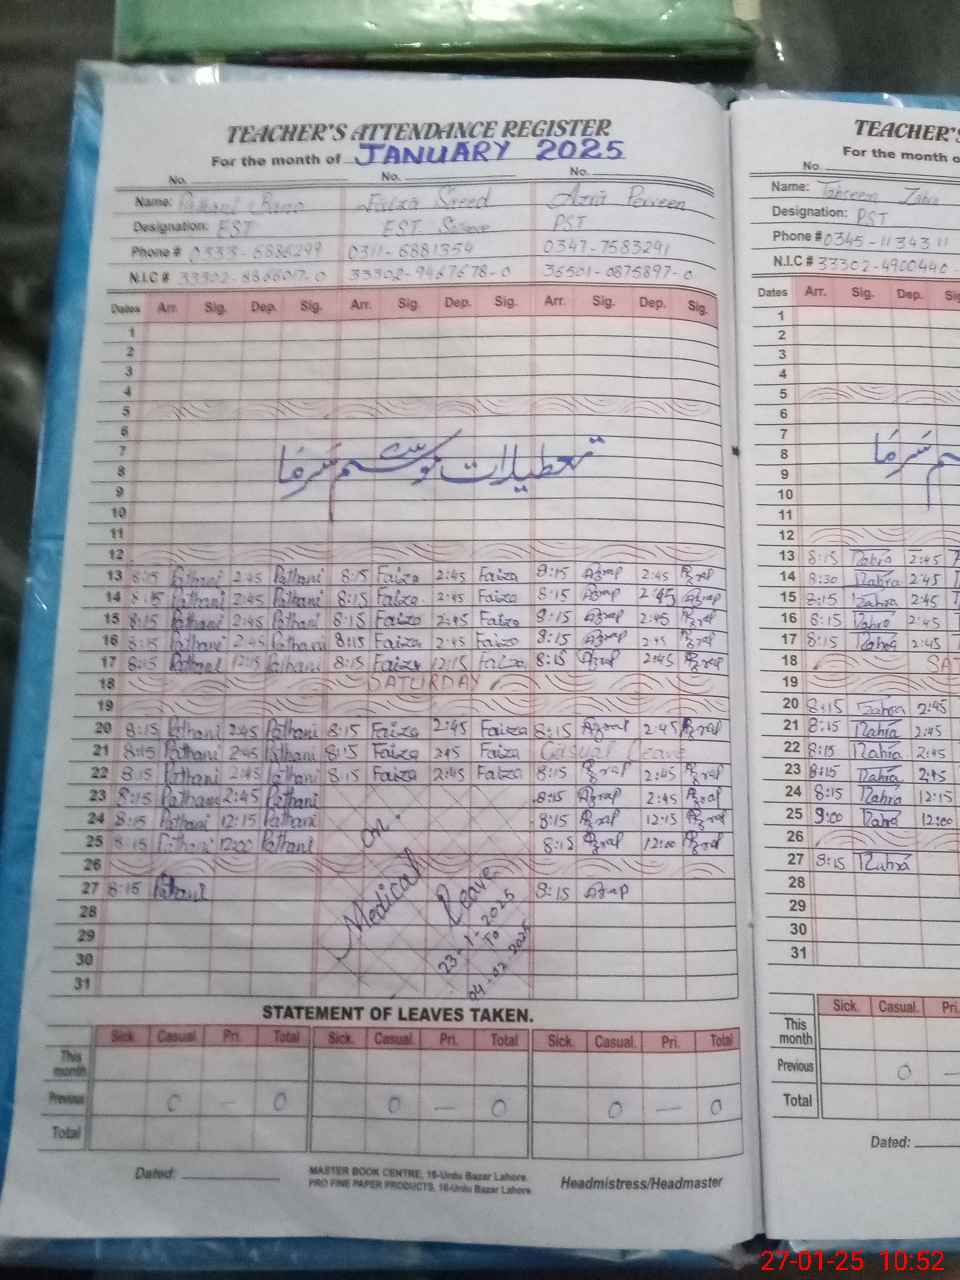 TEACHER'S ATTENDANCE REGISTER
For the month of JANUARY 2025
No. No. No.
Name: Pathani Bano Faiza Saeed Azra Perveen
Designation: EST EST Science PST
Phone # 0333-6886299 0311-6881354 0347-7583291
N.I.C # 33302-8866017-0 33302-9467678-0 36501-0875897-0
Dates Arr. Sig. Dep. Sig. Arr. Sig. Dep. Sig. Arr. Sig. Dep. Sig.
1
2
3
4
5
6
7
تعطیلات موسم سرما
8
9
10
11
12
13 8:15 Pathani 2:45 Pathani 8:15 Faiza 2:45 Faiza 8:15 2:45
14 8:15 Pathani 2:45 Pathani 8:15 Faiza 2:45 Faiza 8:15 2:45
15 8:15 Pathani 2:45 Pathani 8:15 Faiza 2:45 Faiza 8:15 2:45
16 8:15 Pathani 2:45 Pathani 8:15 Faiza 2:45 Faiza 8:15 2:45
17 8:15 Pathani 12:15 Pathani 8:15 Faiza 12:15 Faiza 8:15 2:45
18 SATURDAY
19
20 8:15 Pathani 2:45 Pathani 8:15 Faiza 2:45 Faiza 8:15 2:45
21 8:15 Pathani 2:45 Pathani 8:15 Faiza 2:45 Faiza Casual Leave
22 8:15 Pathani 2:45 Pathani 8:15 Faiza 2:45 Faiza 8:15 2:45
23 8:15 Pathani 2:45 Pathani 8:15 2:45
24 8:15 Pathani 12:15 Pathani on 8:15 12:15
25 8:15 Pathani 12:00 Pathani 8:15 12:00
26
27 8:15 Pathani Medical Leave 8:15
28 23-1-2025
29 To
30 04-02-2025
31
STATEMENT OF LEAVES TAKEN.
Sick. Casual. Pri. Total Sick. Casual. Pri. Total Sick. Casual. Pri. Total
This month
Previous 0 — 0 0 — 0 0 — 0
Total
Dated:
MASTER BOOK CENTRE, 16-Urdu Bazar Lahore.
PRO FINE PAPER PRODUCTS, 16-Urdu Bazar Lahore
Headmistress/Headmaster
TEACHER'S
For the month o
No.
Name: Tahseem Zahra
Designation: PST
Phone # 0345-1134311
N.I.C # 33302-4900440-
Dates Arr. Sig. Dep. Sig
1
2
3
4
5
6
7
م سرما
8
9
10
11
12
13 8:15 Zahra 2:45
14 8:30 Zahra 2:45
15 8:15 Zahra 2:45
16 8:15 Zahra 2:45
17 8:15 Zahra 2:45
18 SAT
19
20 8:15 Zahra 2:45
21 8:15 Zahra 2:45
22 8:15 Zahra 2:45
23 8:15 Zahra 2:45
24 8:15 Zahra 12:15
25 9:00 Zahra 12:00
26
27 8:15 Zahra
28
29
30
31
Sick. Casual. Pri.
This month
Previous 0 —
Total
Dated:
27-01-25 10:52